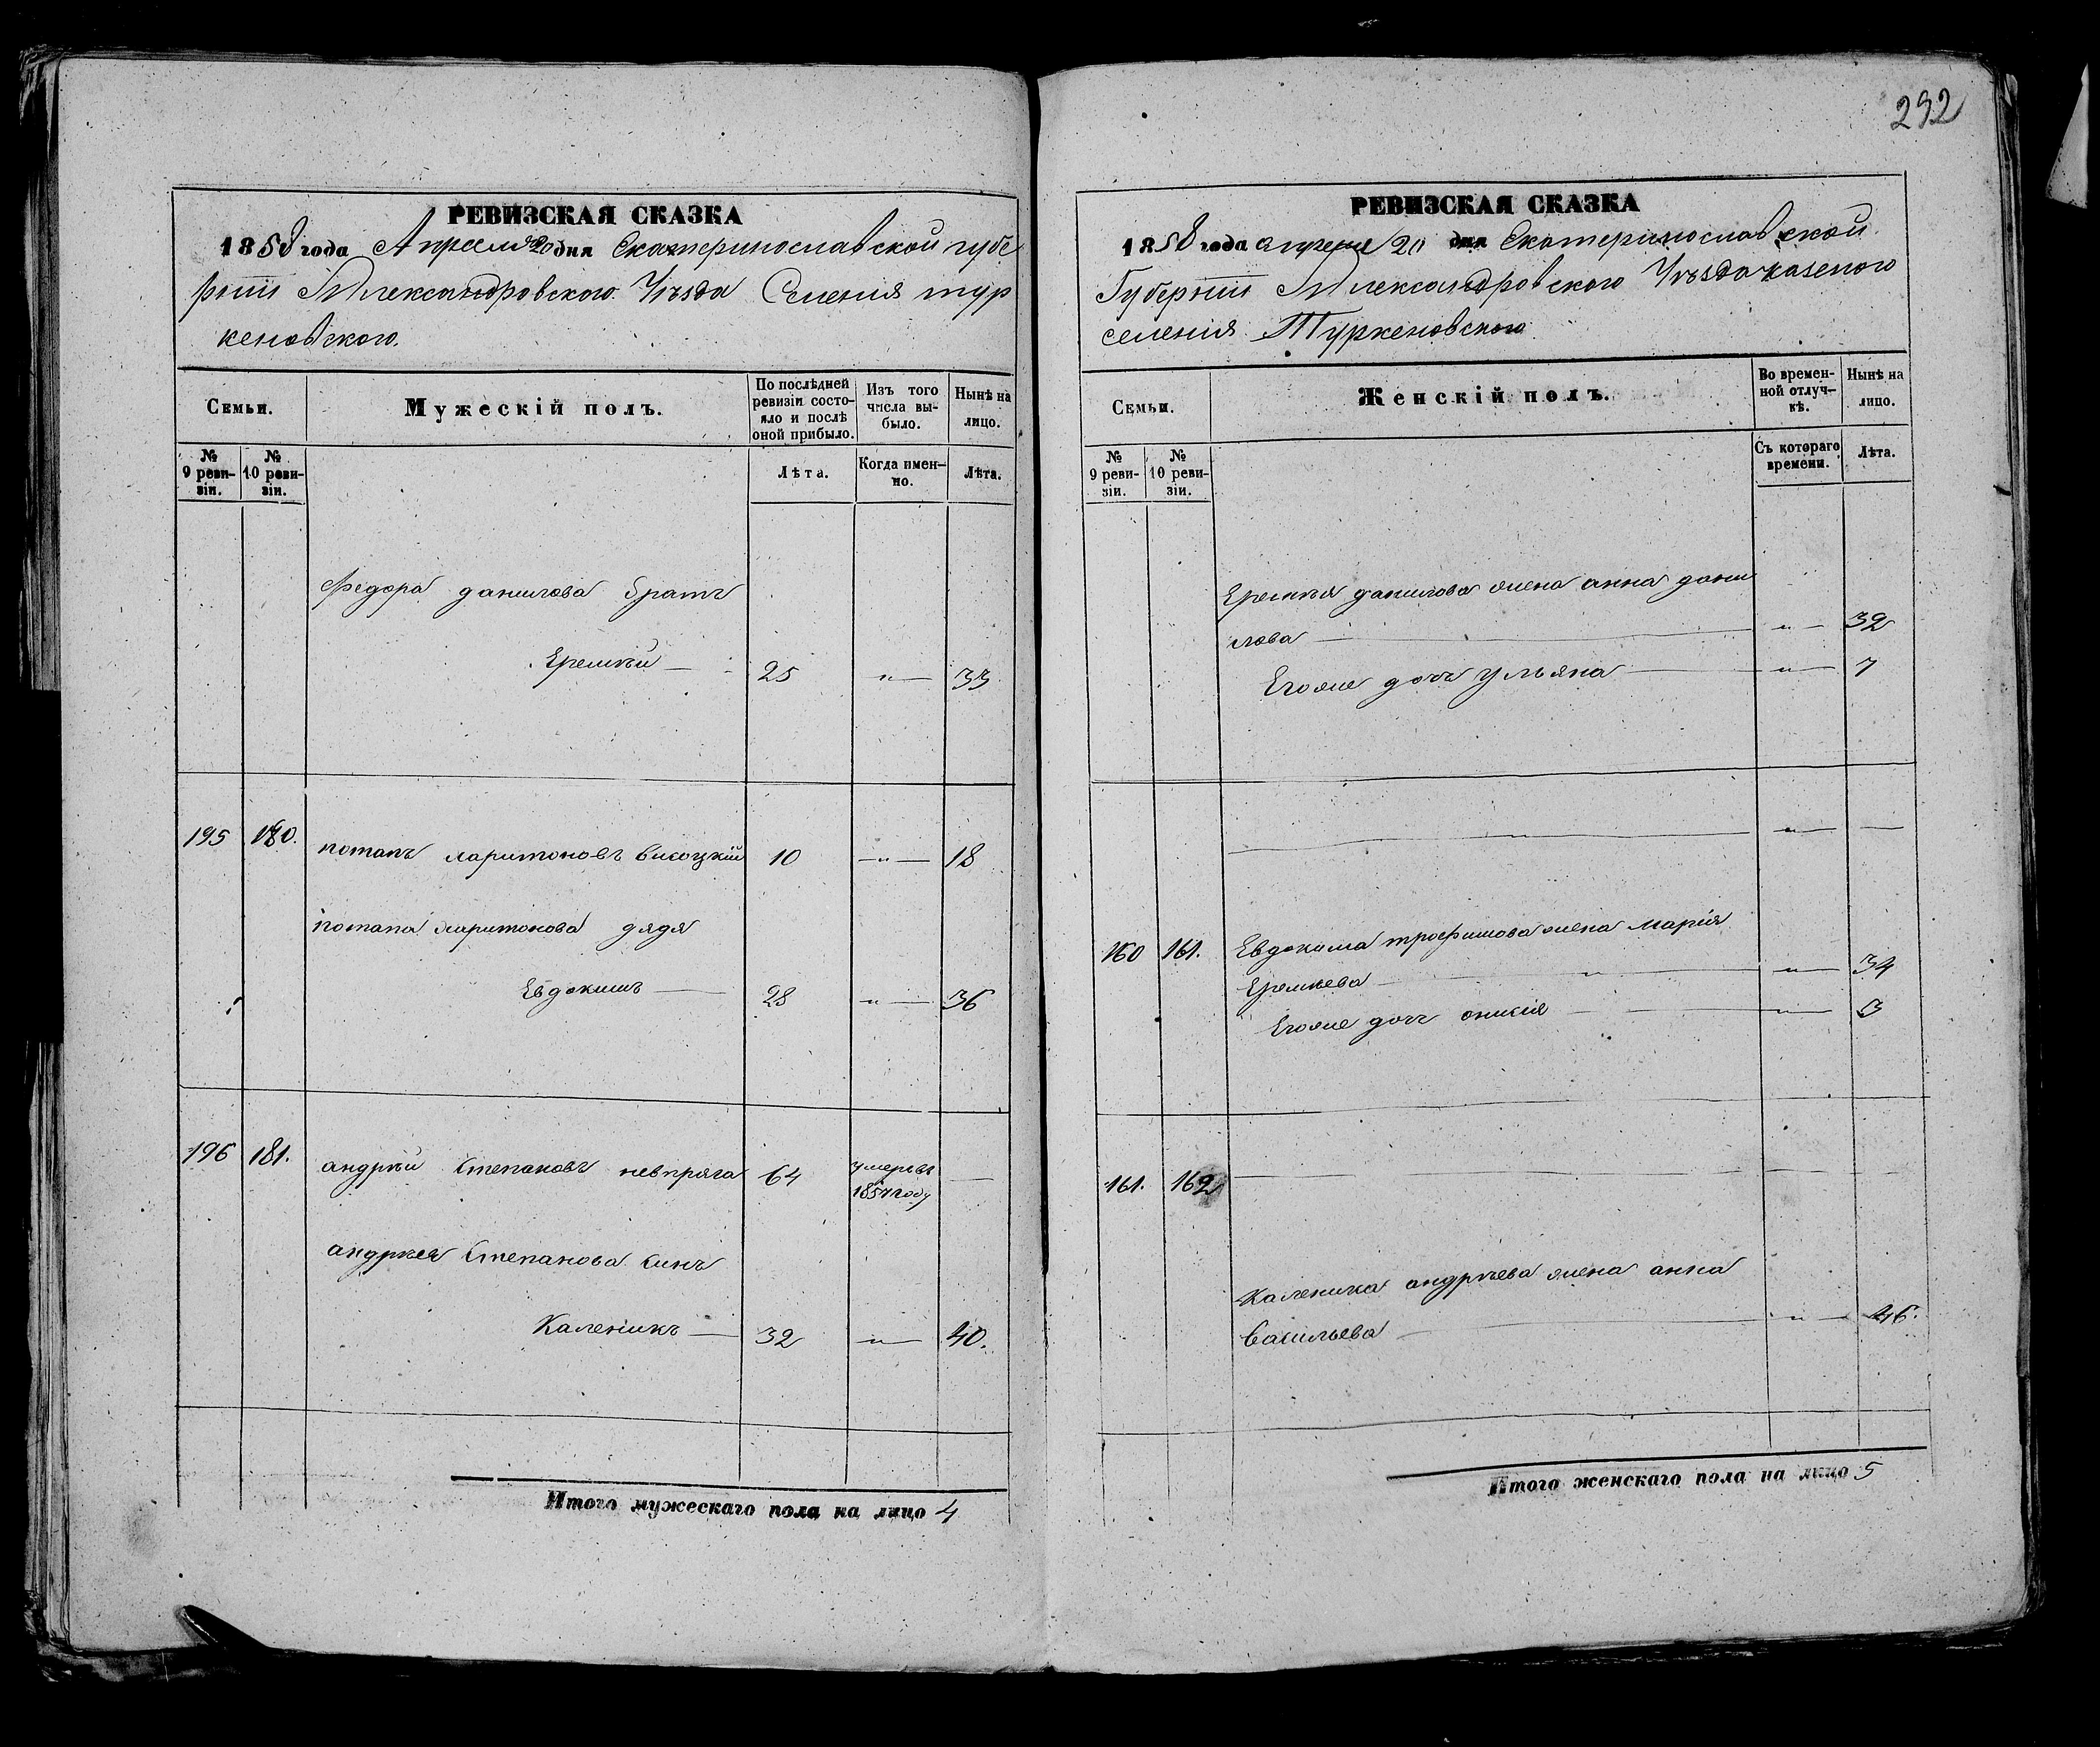 292
РЕВИЗСКАЯ СКАЗКА
1858 года Апреля 20 дня Екатеринославской губе
рніи Александровского Уѣзда Селенія тур
кеновского.
Семьи.
Мужескій полъ.
По послѣдней ревизіи состо-
яло и послѣ
оной прибыло.
Изъ того
числа вы-
было.
Нынѣ на
лицо.
№ 9 реви-
зіи.
№ 10 реви-
зіи.
Лѣта.
Когда имен-
но.
Лѣта.
Федора данилова братъ
Еремѣй — 25 —"— 33
195 180. потапъ харитоновъ високій 10 —"— 18
потапа харитонова дядя
Евдокимъ — 28 "— 36
196 181. андрѣй Степановъ невпряга 64 умеръ въ —
185 году
андрѣя Степанова синъ
Каленикъ — 32 —"— 40.
Итого мужескаго пола на лицо 4
РЕВИЗСКАЯ СКАЗКА
1858 года апреля 20 дня Екатеринославской
Губерніи Александровского Уѣзда казеного
селенія Туркеновского
Семьи.
Женскій полъ.
Во времен-
ной отлуч-
кѣ.
Нынѣ на
лицо.
№ 9 реви-
зіи.
№ 10 реви-
зіи.
Съ котораго
времени.
Лѣта.
Еремѣя данилова жена анна дани
лова — —"— 32
Егоже дочъ ульяна — —"— 7
—"— —"— —
160 161. Евдокима трофимова жена Марія
Еремѣева —"— —"— 34
Егоже дочъ онисія — —"— 3
161. 162 — — —
Каленика андрѣева жена анна
Васильева — —"— 46.
Итого женскаго пола на лицо 5